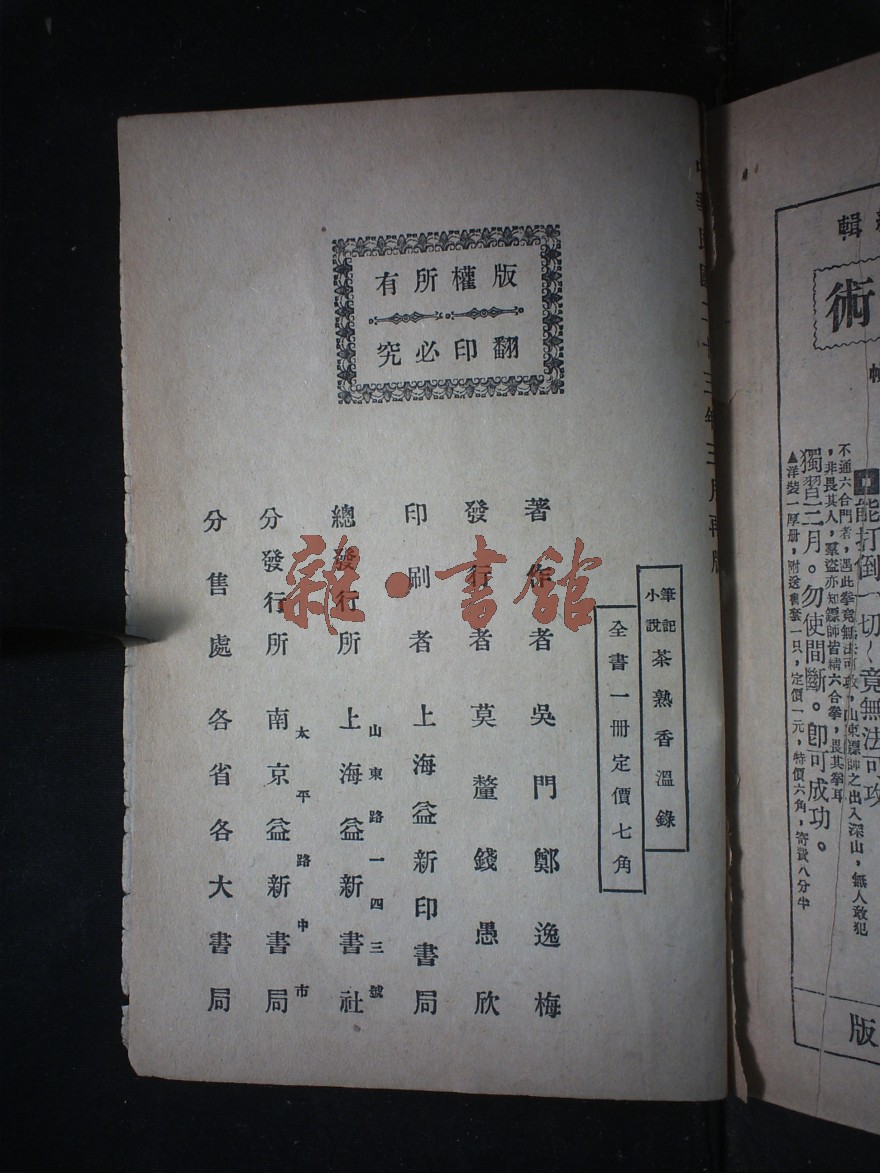 中華民國二十三年三月再版
版權所有
翻印必究
筆記小說 茶熟香溫錄
全書一冊定價七角
著作者 吳門鄭逸梅
發行者 莫釐錢愚欣
印刷者 上海益新印書局
總發行所 上海益新書社
山東路一四三號
分發行所 南京益新書局
太平路中市
分售處 各省各大書局
雜·書館
輯
術
能打倒一切〱竟無法可攻
不通六合門者，遇此拳竟無法可攻，山東鏢師之出入深山，無人敢犯
，非畏其人，羣盜亦知鏢師皆精六合拳，畏其拳耳
獨習三月。勿使間斷。卽可成功。
▲洋裝一厚册，附送書套一只，定價一元，特價六角，寄費八分半
版